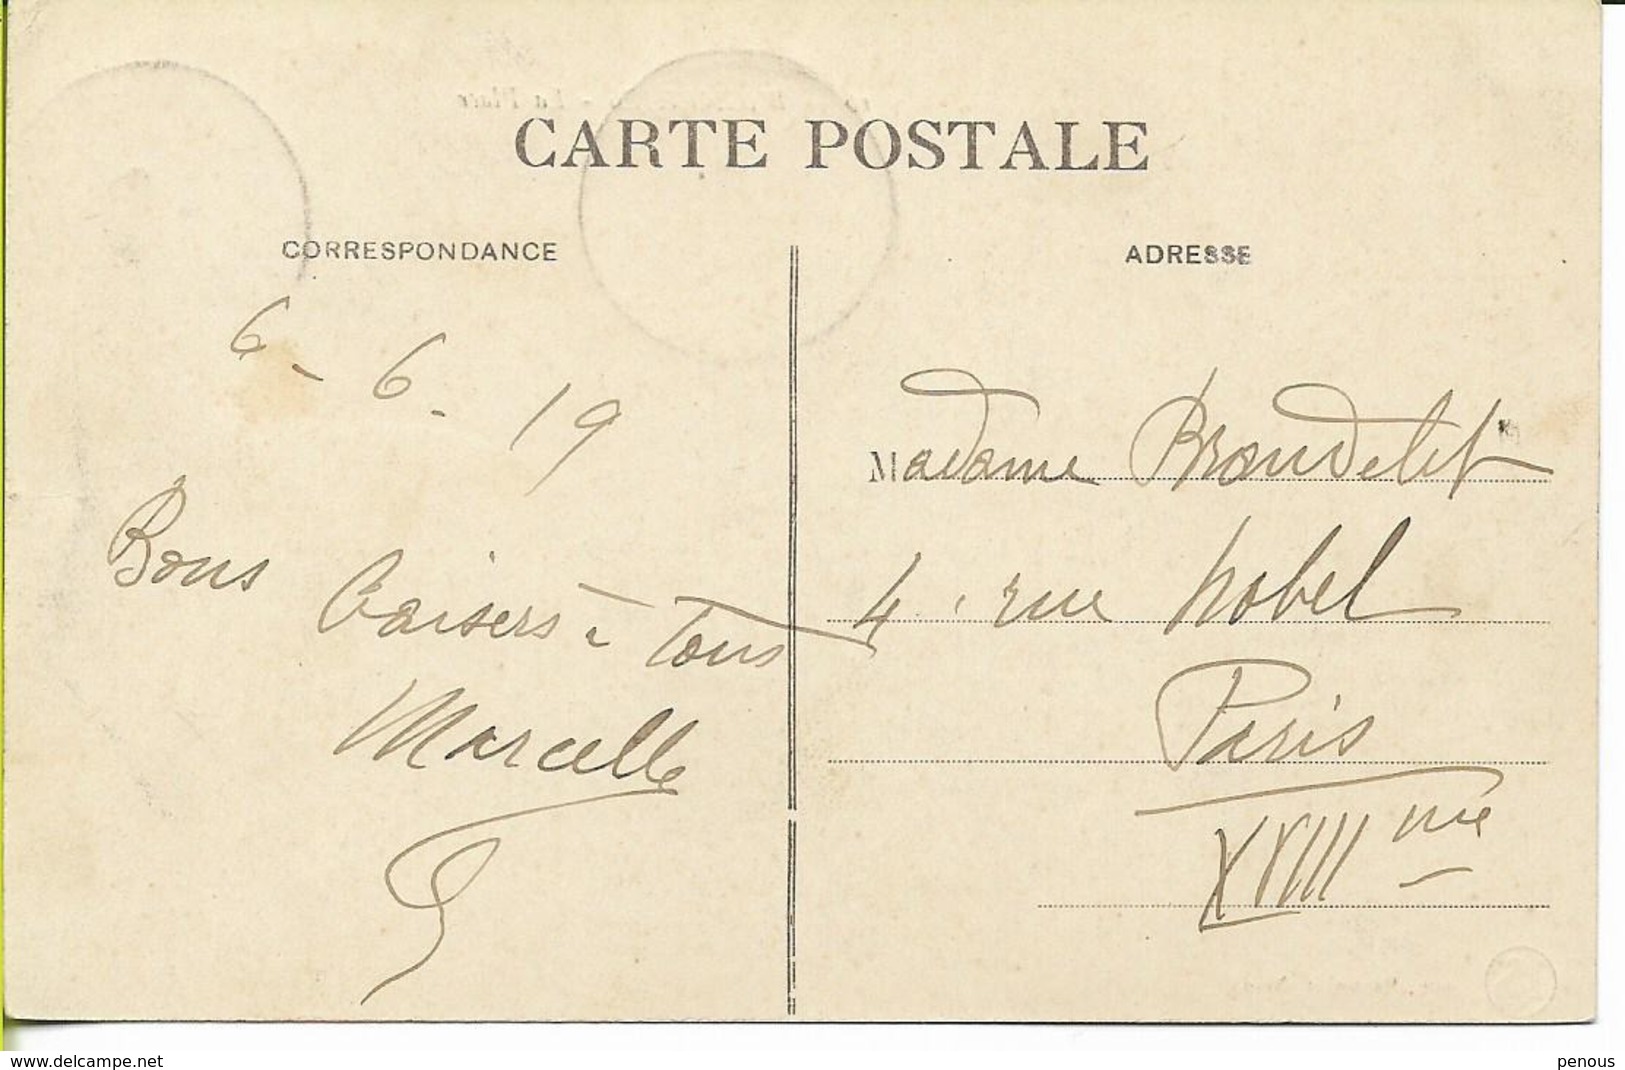 CARTE POSTALE
CORRESPONDANCE
ADRESSE
6 - 6 - 19
Bons baisers à tous
Marcelle
Madame Brandelet
4, rue Nobel
Paris
XVIII me
www.delcampe.net
penous